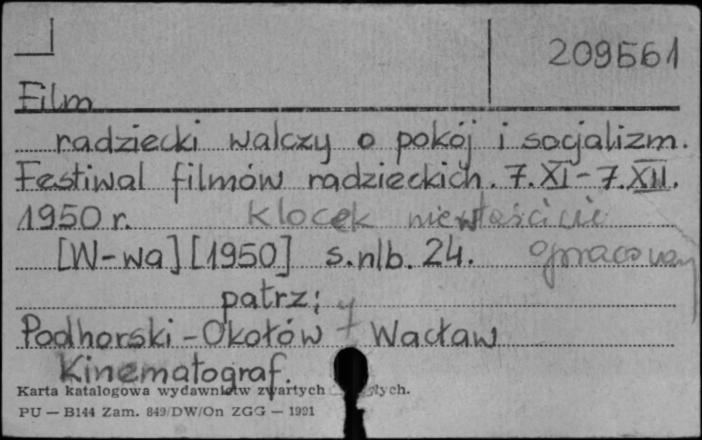 209561
Film
radziecki walczy o pokój i socjalizm.
Festiwal filmów radzieckich. 7.XI-7.XII.
1950 r. Klocek niewłaściwie
[W-wa] [1950] s.nlb. 24. opracowany
patrz:
Podhorski-Okołów Wacław
Kinematograf.
Karta katalogowa wydawnictw zwartych
PU — B144 Zam. 849/DW/On ZGG — 1991